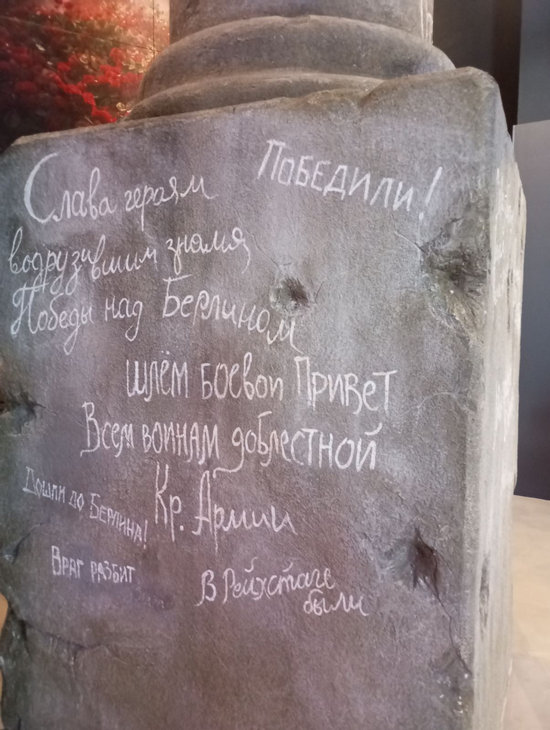 Слава героям
водрузившим знамя
Победы над Берлином
ПОБЕДИЛИ!
шлём боевой Привет
Всем воинам доблестной
Кр. Армии
Дошли до Берлина!
Враг разбит
В Рейхстаге
были